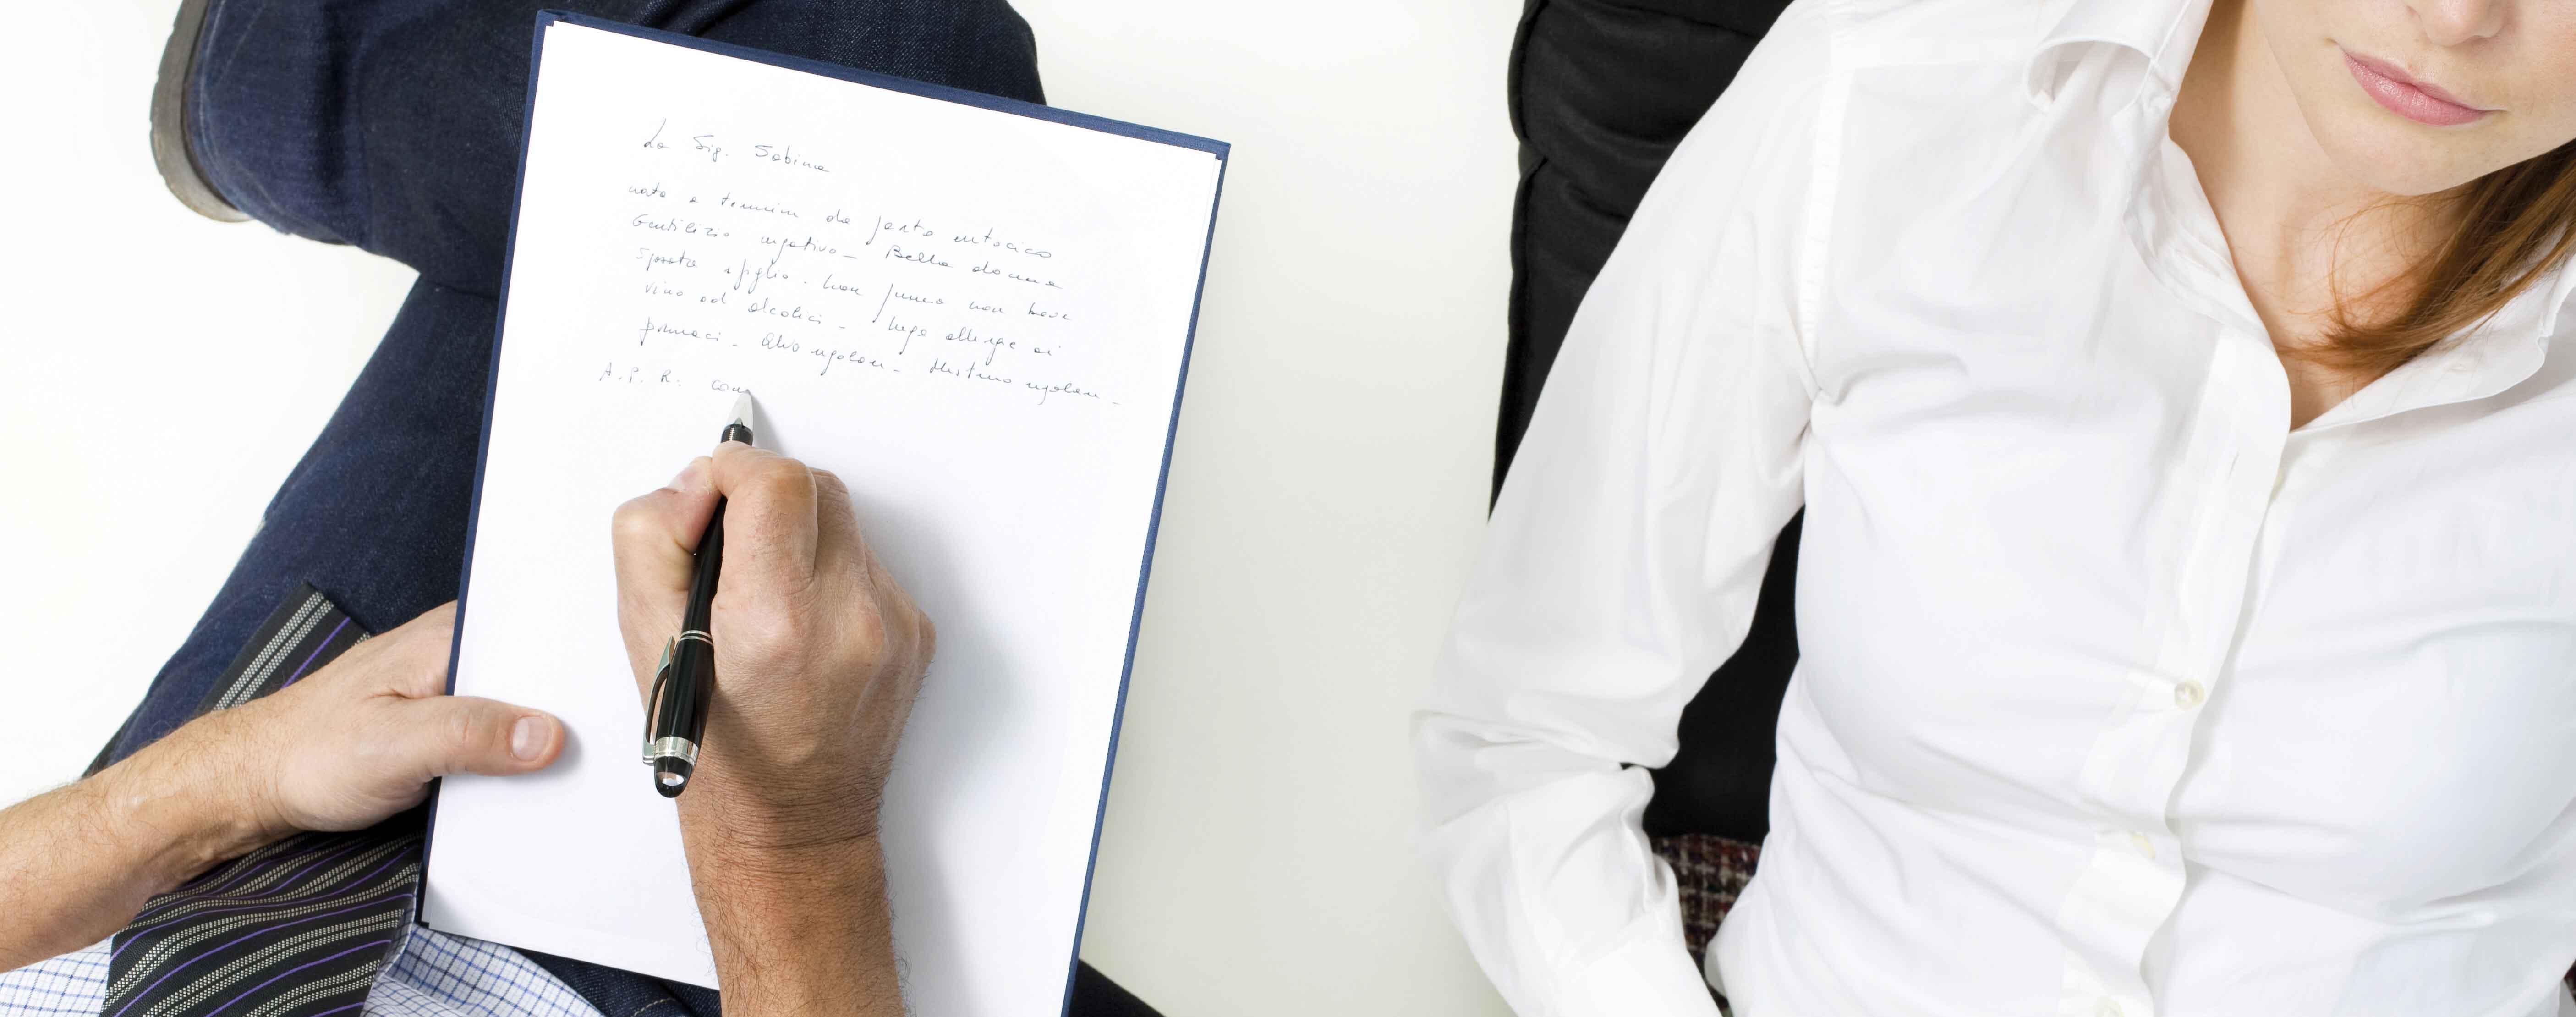 La Sig. Sabina
nata a termine da parto eutocico
Gentilizio negativo - Bella donna
Sposata 1 figlio. Non fuma non beve
vino od alcolici - Nega allergie ai
farmaci. Alvo regolare - Mestruo regolare -
A. P. R: